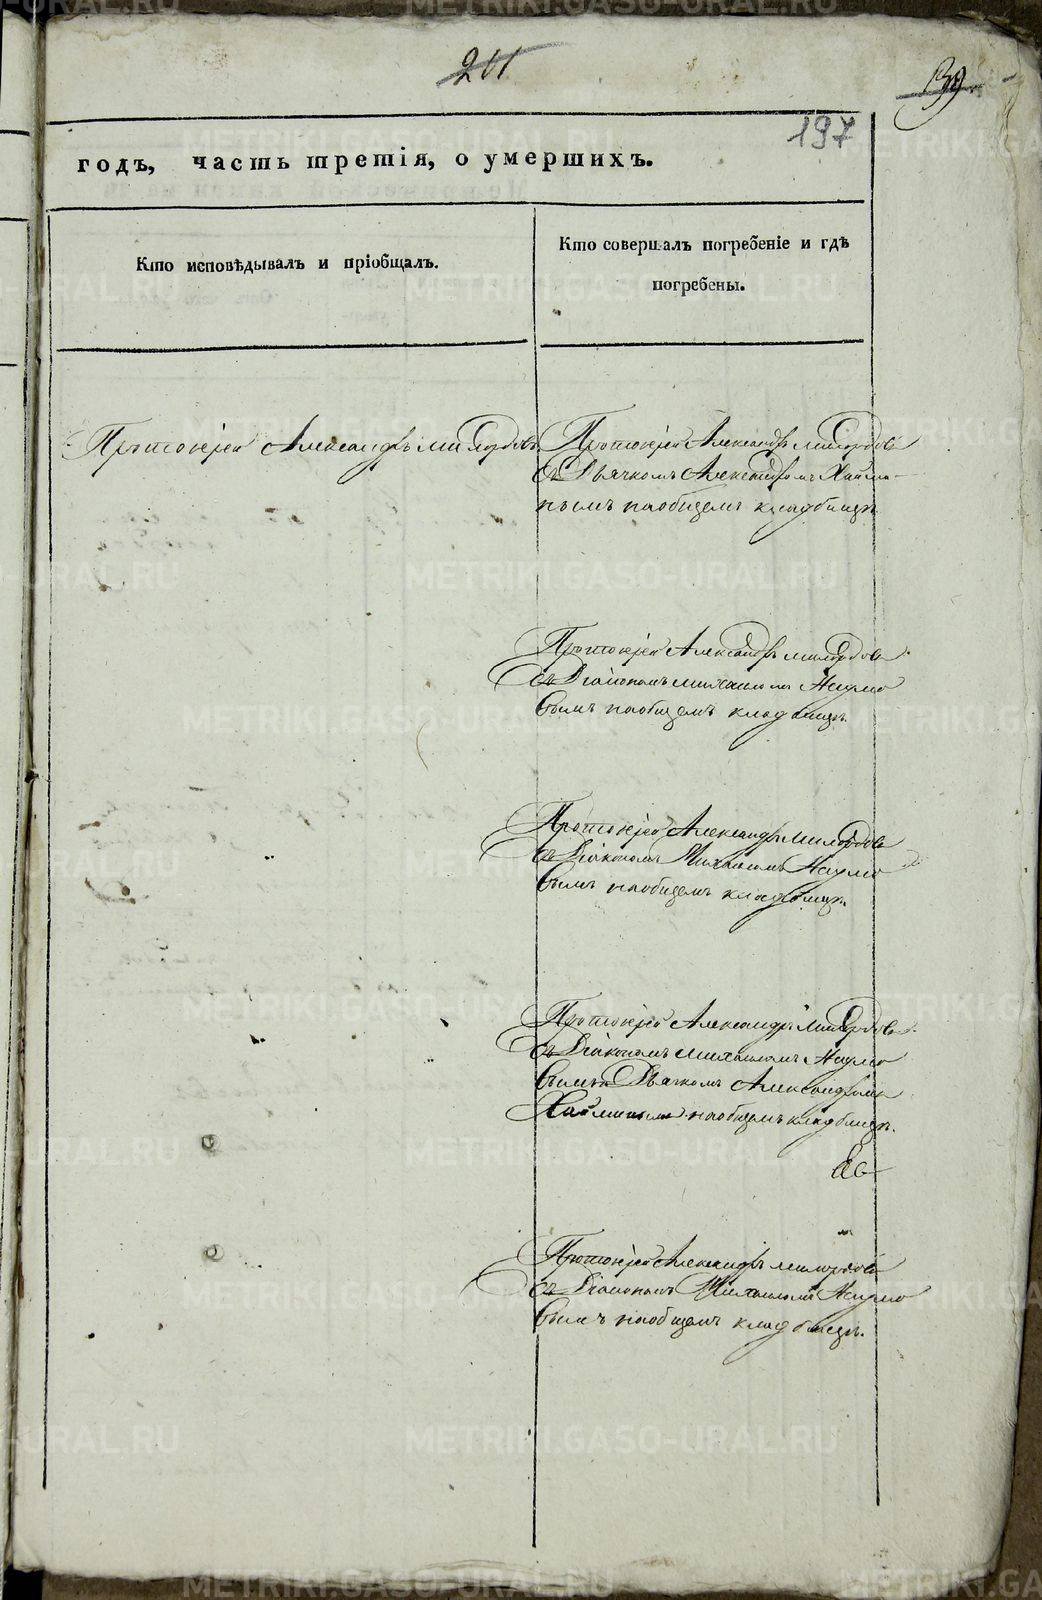 211
139
197
годъ, часть третія, о умершихъ.
Кто исповѣдывалъ и пріобщалъ.
Кто совершалъ погребеніе и гдѣ
погребены.
Протоіерей Александръ Милордовъ
Протоіерей Александръ Милордовъ
съ Дьячкомъ Александромъ
нымъ наобщемъ кладбищѣ
Протоіерей Александръ Милордовъ
съ Діакономъ Михаиломъ Наумо
вымъ наобщемъ кладбищѣ.
Протоіерей Александръ Милордовъ
съ Діакономъ Михаиломъ Наумо
вымъ наобщемъ кладбищѣ.
Протоіерей Александръ Милордовъ
съ Діакономъ Михаиломъ Наумо
вымъ Дьячкомъ Александромъ
наобщемъ кладбищѣ.
Протоіерей Александръ Милордовъ
съ Діакономъ Михаиломъ Наумо
вымъ наобщемъ кладбищѣ.
METRIKI.GASO-URAL.RU